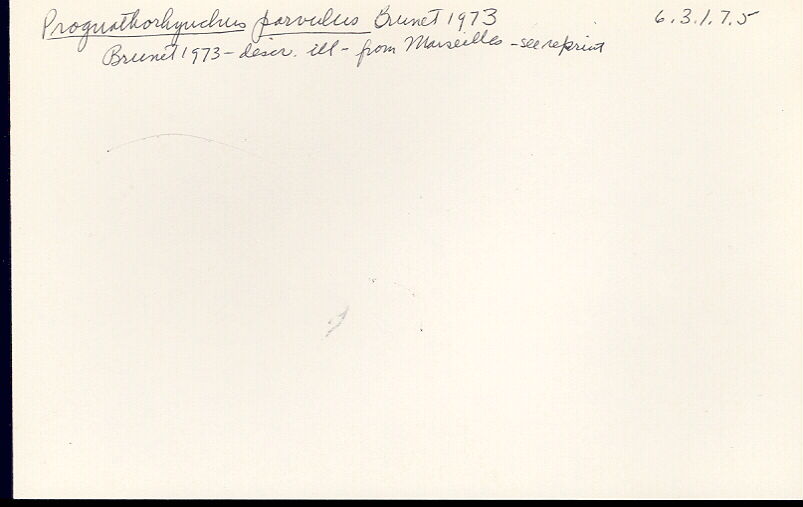 Prognathorhynchus parvulus Brunet 1973 6.3.1.7.5
Brunet 1973 - descr. ill - from Marseilles - see reprint